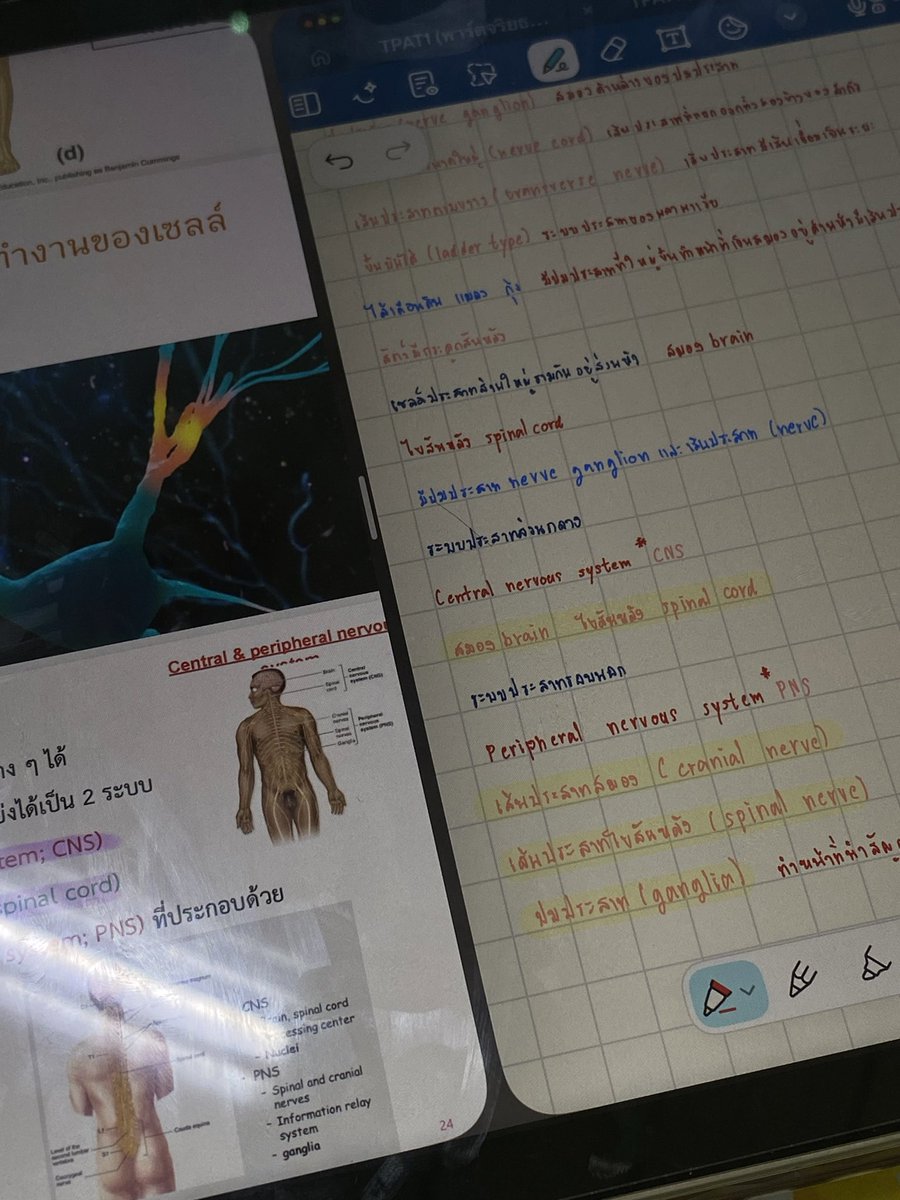 (d)
Education, Inc., publishing as Benjamin Cummings
ทำงานของเซลล์
Central & peripheral nervous
system
Brain
Spinal cord
Central nervous system (CNS)
Cranial nerves
Spinal nerves
Ganglia
Peripheral nervous system (PNS)
าง ๆ ได้
บ่งได้เป็น 2 ระบบ
tem; CNS)
spinal cord)
system; PNS) ที่ประกอบด้วย
CNS
spinal cord
center
- Nuclei
- PNS
- Spinal and cranial
nerves
- Information relay
system
- ganglia
Cauda equina
24
TPAT1 (พาร์ตจริยธ...
(nerve ganglion) สมองด้านล่างของปมประสาท
(nerve cord) เส้นประสาท
เส้นประสาทตามขวาง (transverse nerve) เส้นประสาท
ขั้นบันได (ladder type) ระบบประสาทของพลานาเรีย
ไส้เดือนดิน แมลง กุ้ง มีปมประสาทที่
สัตว์มีกระดูกสันหลัง
เซลล์ประสาทส่วนใหญ่รวมกันอยู่ส่วนหัว สมอง brain
ไขสันหลัง spinal cord
มีปมประสาท nerve ganglion และเส้นประสาท (nerve)
ระบบประสาทส่วนกลาง
Central nervous system* CNS
สมอง brain ไขสันหลัง spinal cord
ระบบประสาทรอบนอก
Peripheral nervous system* PNS
เส้นประสาทสมอง (cranial nerve)
เส้นประสาทไขสันหลัง (spinal nerve)
ปมประสาท (ganglia) ทำหน้าที่นำสัญ